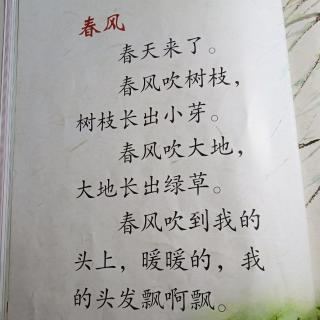 春风
春天来了。
春风吹树枝，
树枝长出小芽。
春风吹大地，
大地长出绿草。
春风吹到我的
头上，暖暖的，我
的头发飘啊飘。